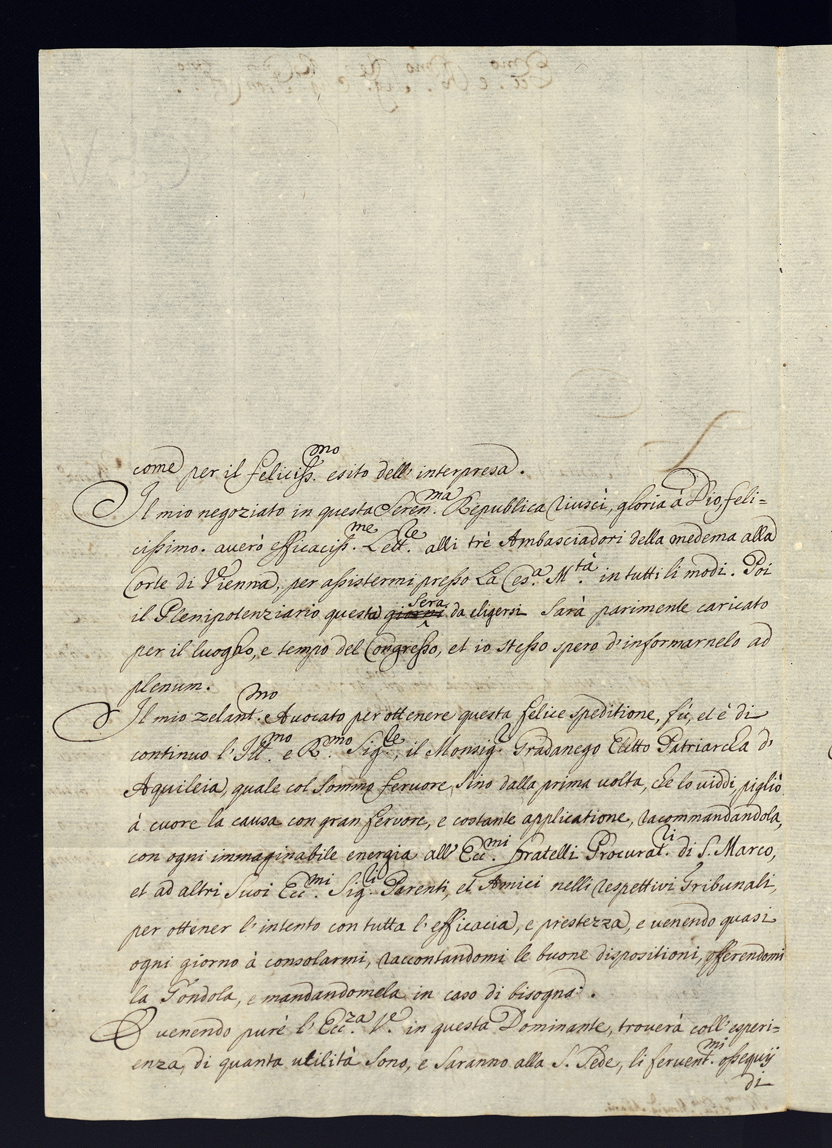 come per il feliciss.mo esito dell' interpresa.
Il mio negoziato in questa Seren.ma Republica riuscì, gloria à Dio, feli-
cissimo. averò efficaciss.me Lett.re alli trè Ambasciadori della medema alla
Corte di Vienna, per assistermi presso La Ces.a M.tà in tutti li modi. Poi
il Plenipotenziario questa giorni Sera da eligersi sarà parimente caricato
per il luogho, e tempo del Congresso, et io stesso spero d'informarnelo ad
plenum.
Il mio zelant.mo Avocato per ottenere questa felice speditione, fù, et è di
continuo l'Ill.mo e R.mo Sig.re, il Monsig.r Gradanego Eletto Patriarcha d'
Aquileia, quale col sommo fervore, sino dalla prima volta, che lo viddi, pigliò
à cuore la causa con gran fervore, e costante applicatione, racommandandola,
con ogni immaginabile energia all' Ecc.mi fratelli Procurat.ri di S. Marco,
et ad altri suoi Ecc.mi Sig.ri Parenti, et Amici nelli respettivi Tribunali,
per ottener l'intento con tutta l'efficacia, e prestezza, e venendo quasi
ogni giorno à consolarmi, raccontandomi le buone dispositioni, offerendomi
la Gondola, e mandandomela in caso di bisogna.
E venendo purè l'Ecc.za V.e in questa Dominante, troverà coll' esperi-
enza, di quanta utilità sono, e saranno alla S. Sede, li fervent.mi ossequij
di